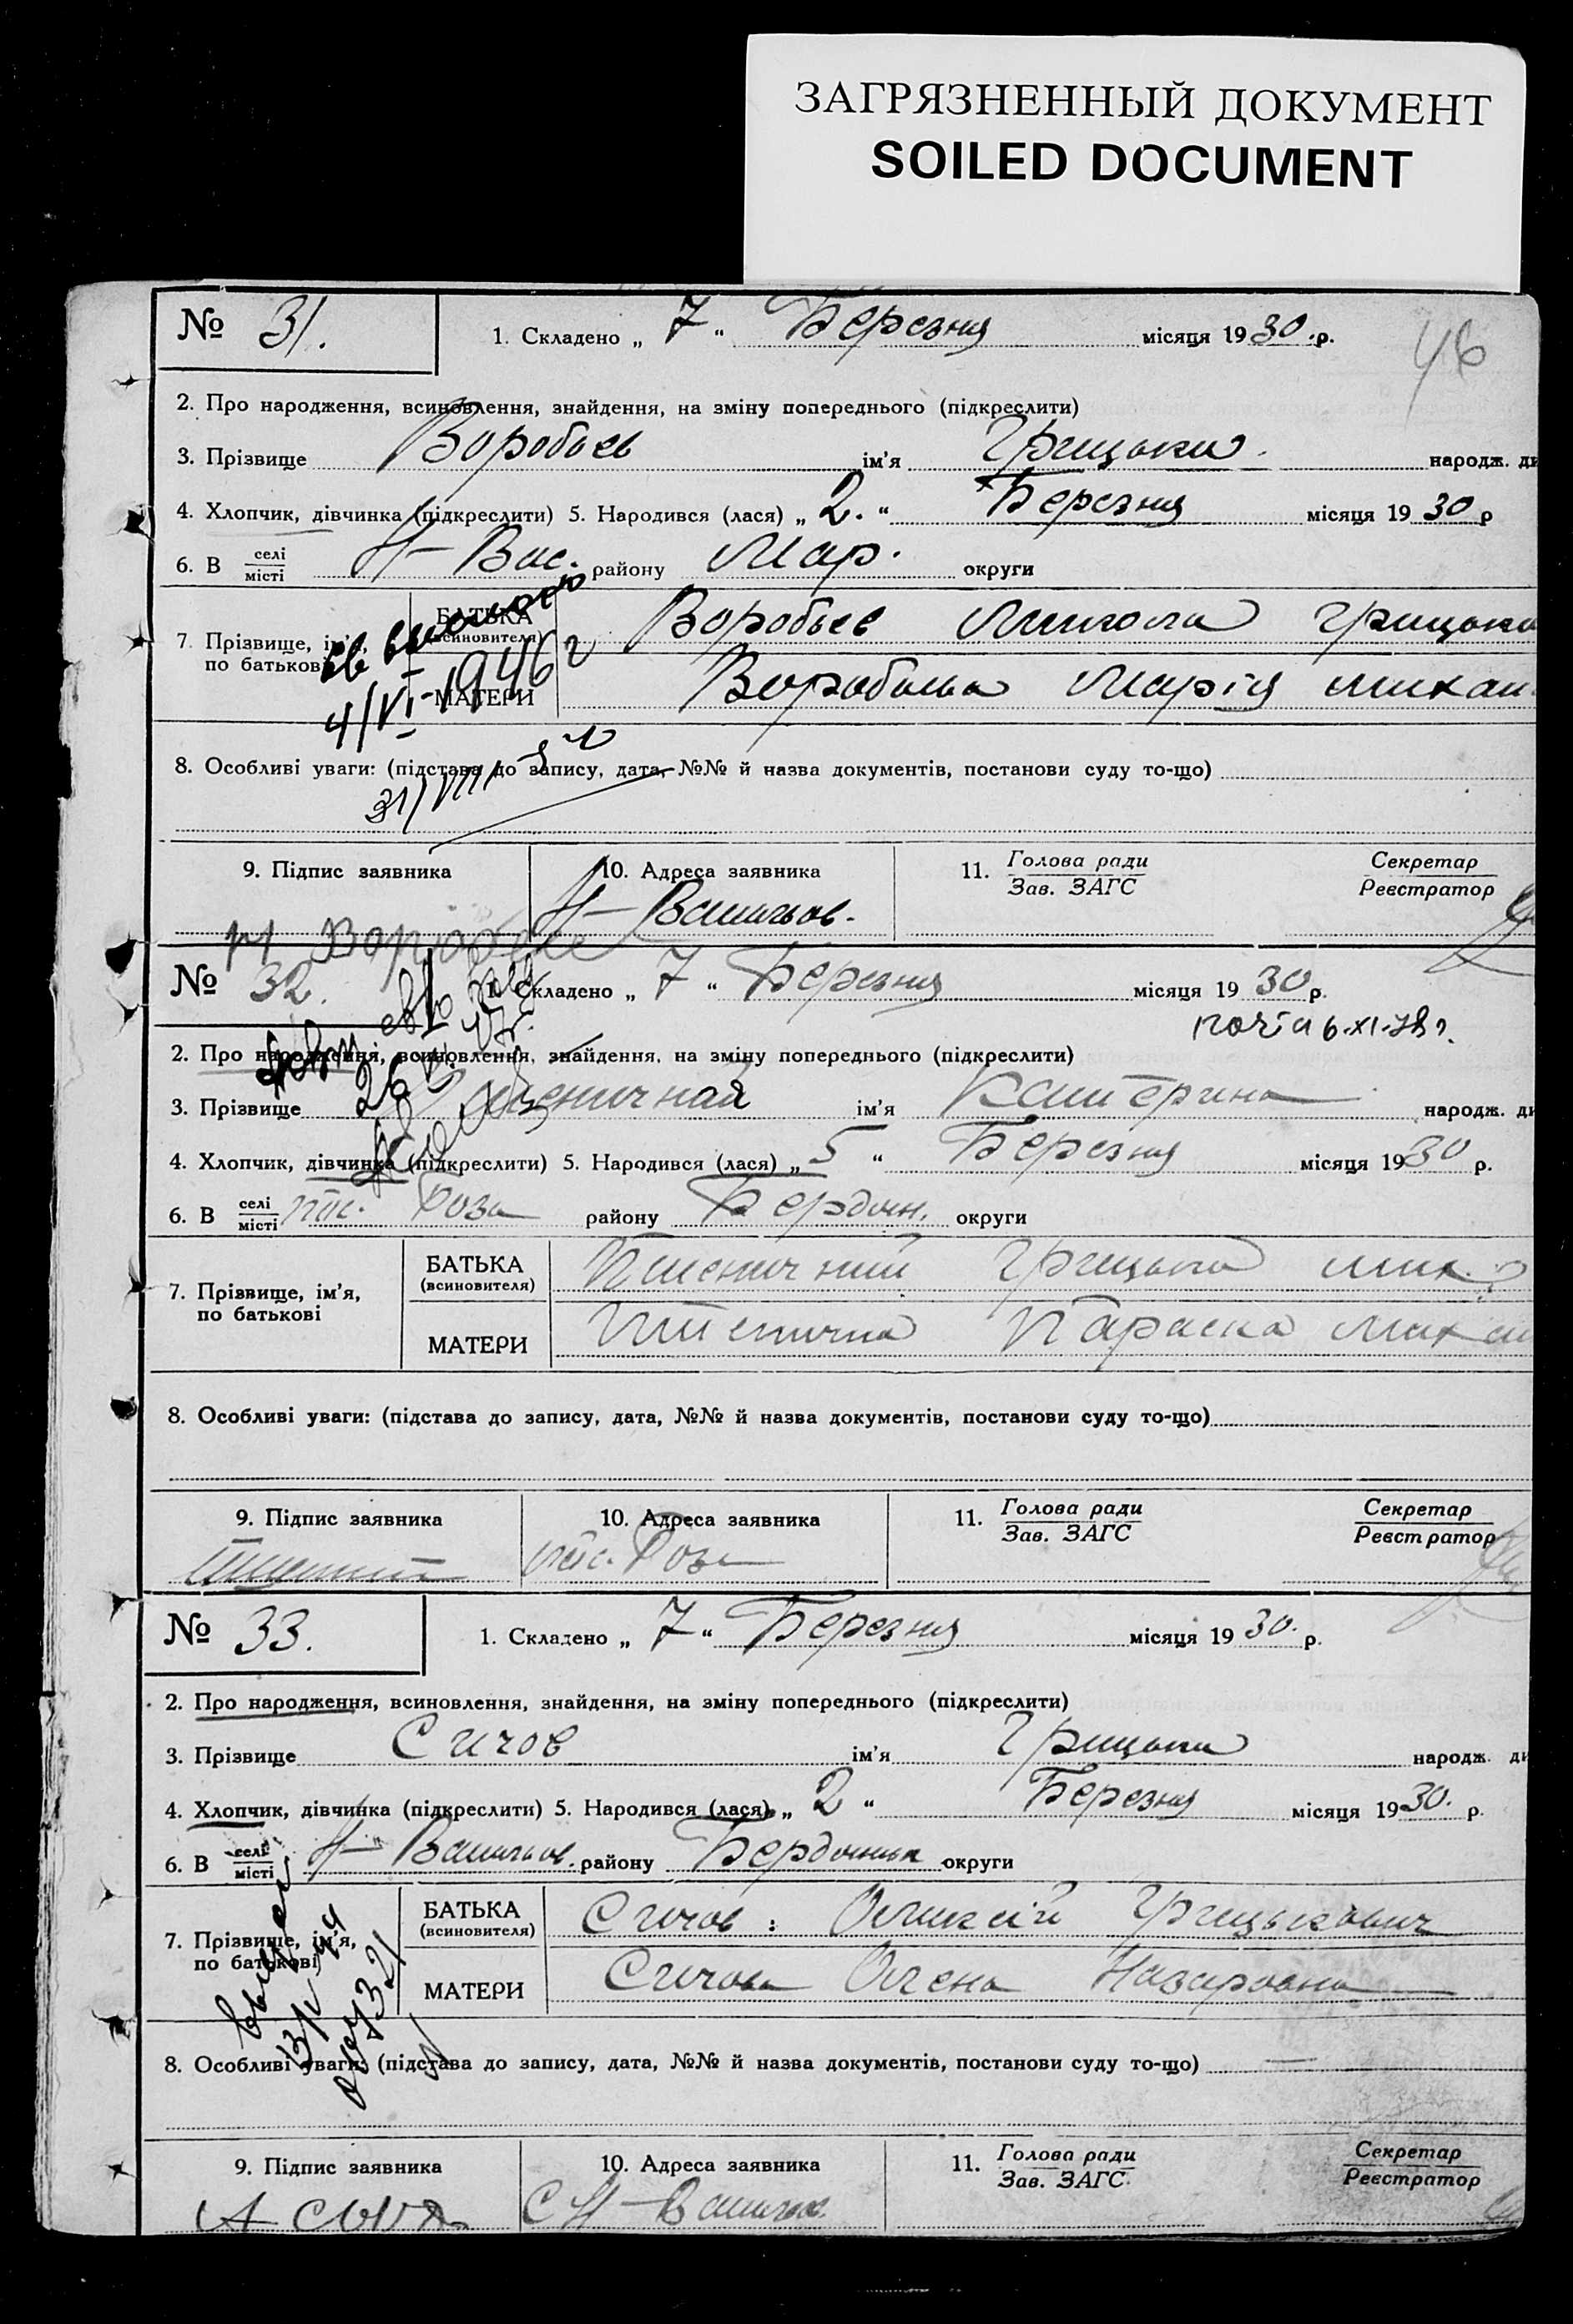 ЗАГРЯЗНЕННЫЙ ДОКУМЕНТ
SOILED DOCUMENT
46
№ 31. 1. Складено „ 7 “ Березня місяця 1930.р.
2. Про народження, всиновлення, знайдення, на зміну попереднього (підкреслити)
3. Прізвище Воробьев ім'я Грицько народж. ди
4. Хлопчик, дівчинка (підкреслити) 5. Народився (лася) „ 2. “ Березня місяця 1930 р
6. В селі/місті Н-Вас. району Мар. округи
7. Прізвище, ім'я, по батькові
БАТЬКА (всиновителя) Воробьев Микола Грицько
МАТЕРИ Воробьева Марія Михай
4/VI-1946 г
31/VIII
8. Особливі уваги: (підстава до запису, дата, №№ й назва документів, постанови суду то-що)
9. Підпис заявника 10. Адреса заявника 11. Голова ради/Зав. ЗАГС Секретар/Реєстратор
Н-Васильев.
№ 32. 1. Складено „ 7 “ Березня місяця 1930 р.
почта 6.XI.78 г.
2. Про народження, всиновлення, знайдення, на зміну попереднього (підкреслити)
26
3. Прізвище Пшеничная ім'я Катерина народж. ди
4. Хлопчик, дівчинка (підкреслити) 5. Народився (лася) „ 5 “ Березня місяця 1930 р.
6. В селі/місті пос. Роза району Бердян. округи
7. Прізвище, ім'я, по батькові
БАТЬКА (всиновителя) Пшеничний Грицько Мих.
МАТЕРИ Пшенична Параска Михай
8. Особливі уваги: (підстава до запису, дата, №№ й назва документів, постанови суду то-що)
9. Підпис заявника 10. Адреса заявника 11. Голова ради/Зав. ЗАГС Секретар/Реєстратор
пос. Роза
№ 33. 1. Складено „ 7 “ Березня місяця 1930. р.
2. Про народження, всиновлення, знайдення, на зміну попереднього (підкреслити)
3. Прізвище Сичов ім'я Грицько народж. ди
4. Хлопчик, дівчинка (підкреслити) 5. Народився (лася) „ 2 “ Березня місяця 1930. р.
6. В селі/місті Н-Васильев. району Бердянськ округи
7. Прізвище, ім'я, по батькові
БАТЬКА (всиновителя) Сичов Олексій Грицькович
МАТЕРИ Сичова Олена Назаровна
8. Особливі уваги: (підстава до запису, дата, №№ й назва документів, постанови суду то-що)
9. Підпис заявника 10. Адреса заявника 11. Голова ради/Зав. ЗАГС Секретар/Реєстратор
С Н-Васильев.